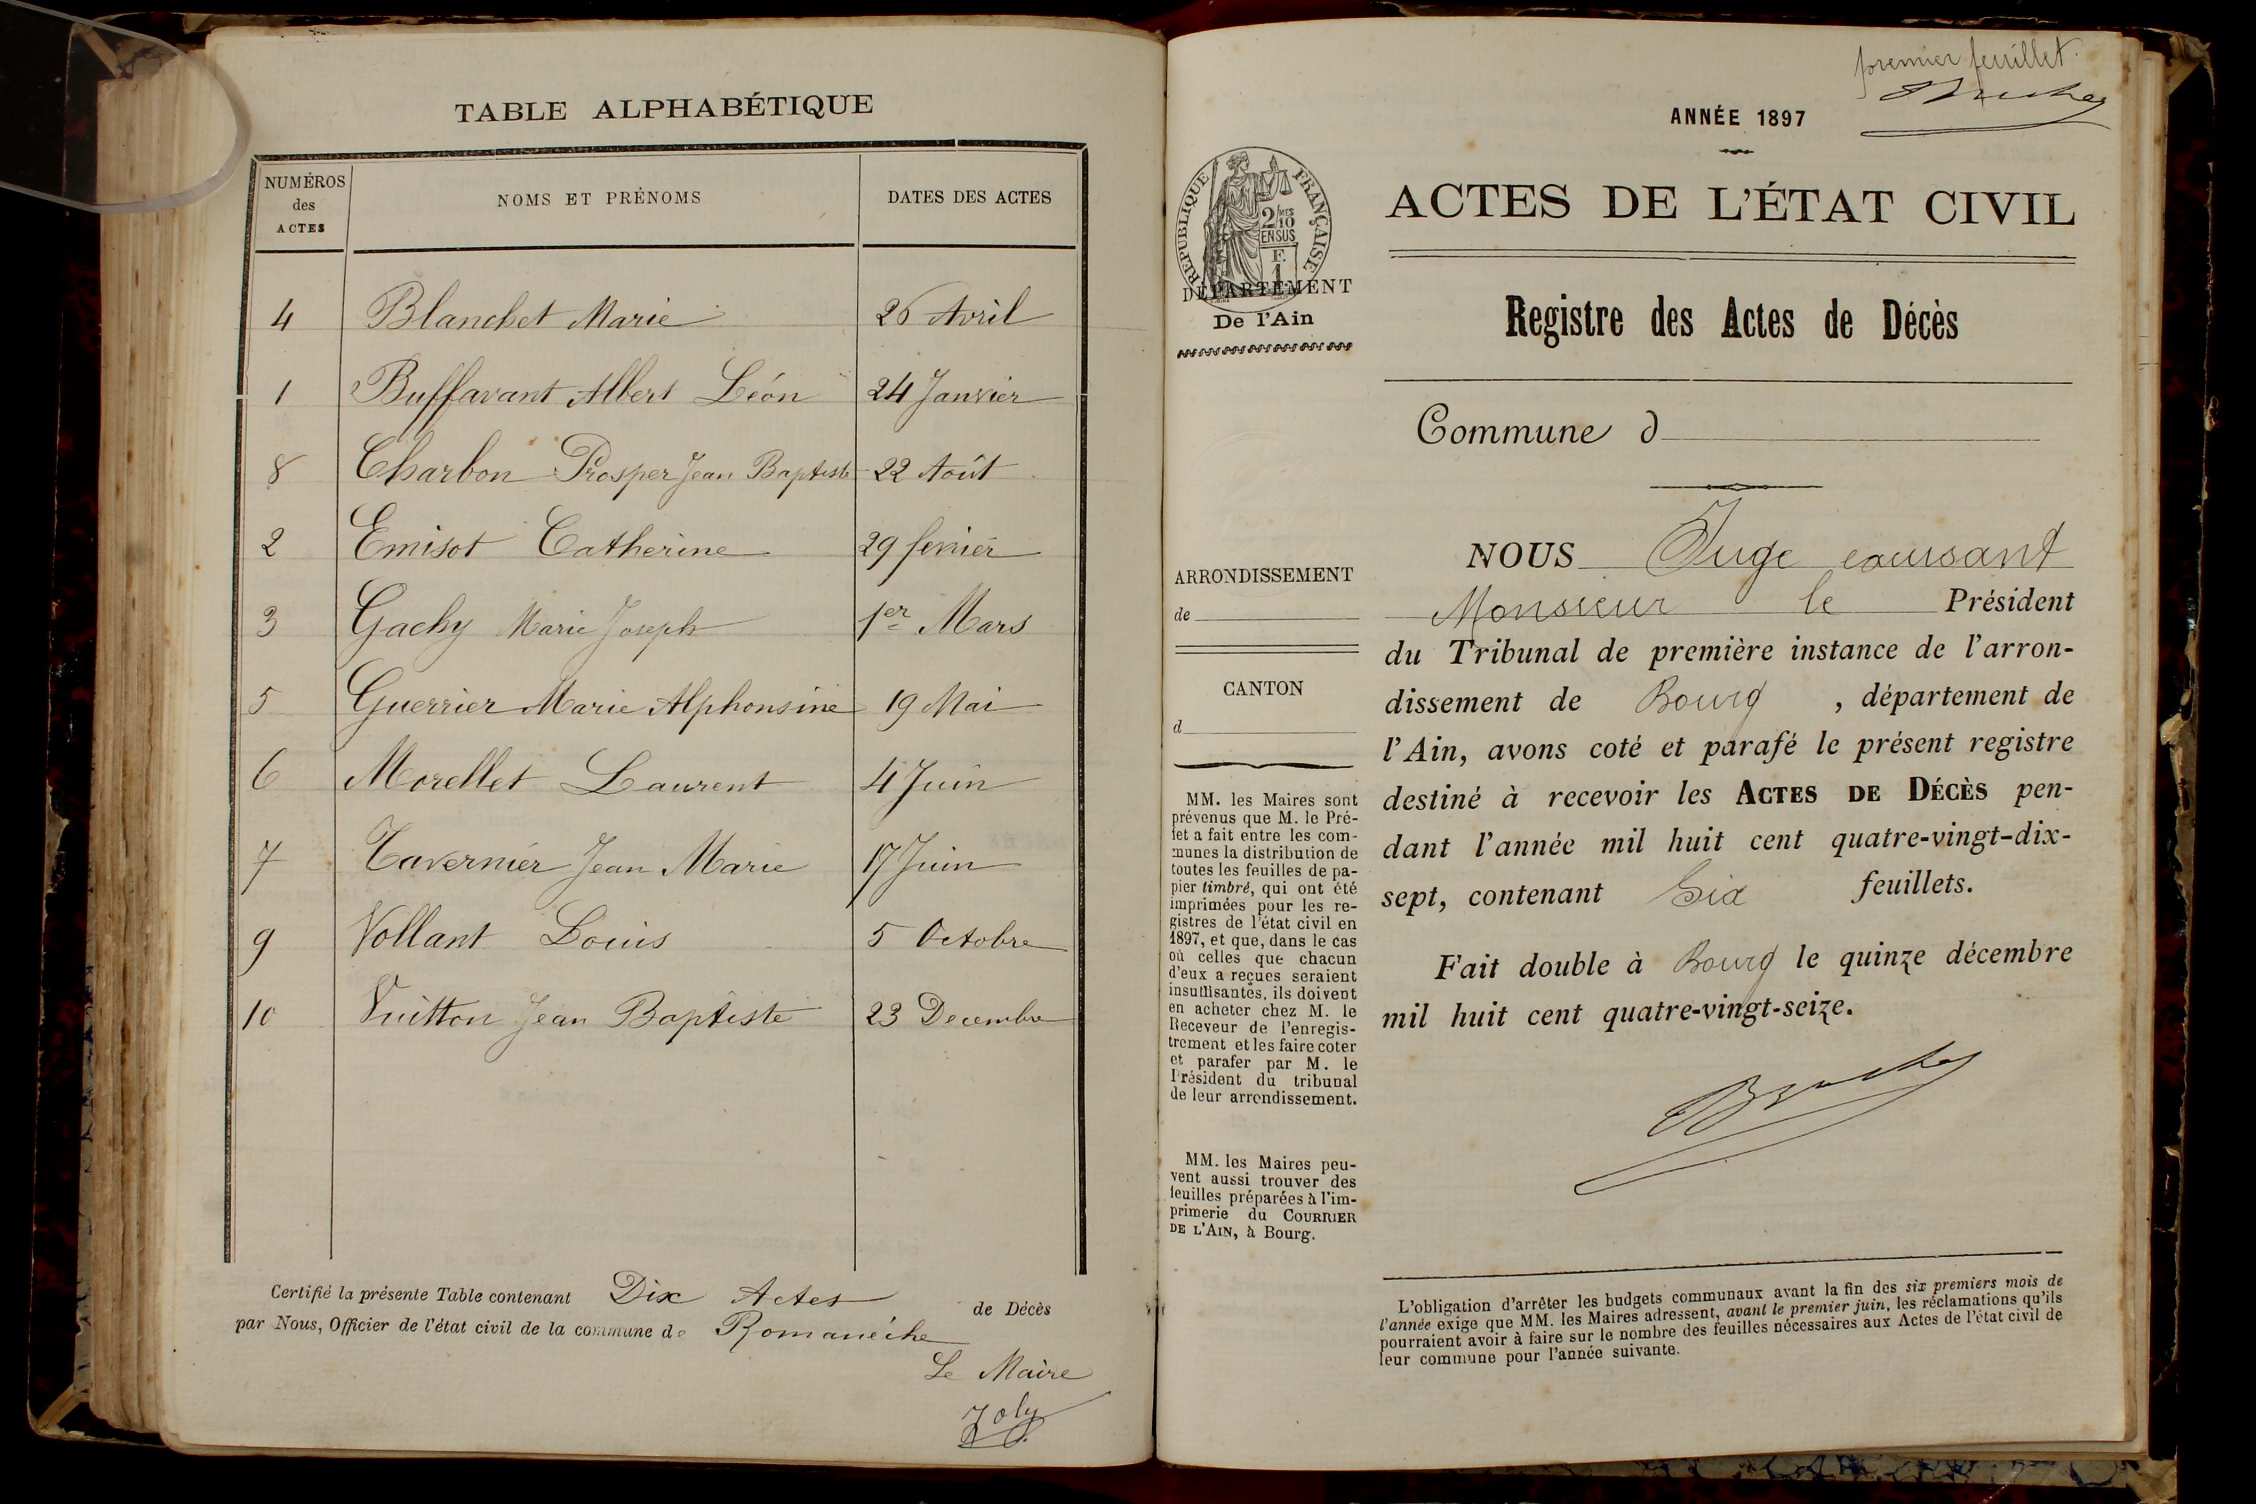 TABLE ALPHABÉTIQUE
NUMÉROS des ACTES NOMS ET PRÉNOMS DATES DES ACTES
4 Blanchet Marie 26 Avril
1 Buffavant Albert Léon 24 Janvier
8 Charbon Prosper Jean Baptiste 22 Août
2 Emisot Catherine 29 fevrier
3 Gachy Marie Joseph 1er Mars
5 Guerrier Marie Alphonsine 19 Mai
6 Morellet Laurent 4 Juin
7 Tavernier Jean Marie 17 Juin
9 Vollant Louis 5 Octobre
10 Vuitton Jean Baptiste 23 Decembre
Certifié la présente Table contenant Dix Actes de Décès
par Nous, Officier de l'état civil de la commune de Romanèche
Le Maire
Joly
premier feuillet.
ANNÉE 1897
RÉPUBLIQUE FRANÇAISE
2/10 EN SUS
F. 1
DÉPARTEMENT
De l'Ain
ACTES DE L'ÉTAT CIVIL
Registre des Actes de Décès
Commune d
ARRONDISSEMENT
de
CANTON
d
MM. les Maires sont
prévenus que M. le Pré-
fet a fait entre les com-
munes la distribution de
toutes les feuilles de pa-
pier timbré, qui ont été
imprimées pour les re-
gistres de l'état civil en
1897, et que, dans le cas
où celles que chacun
d'eux a reçues seraient
insuffisantes, ils doivent
en acheter chez M. le
Receveur de l'enregis-
trement et les faire coter
et parafer par M. le
Président du tribunal
de leur arrondissement.
MM. les Maires peu-
vent aussi trouver des
feuilles préparées à l'im-
primerie du COURRIER
DE L'AIN, à Bourg.
NOUS Juge
Monsieur le Président
du Tribunal de première instance de l'arron-
dissement de Bourg, département de
l'Ain, avons coté et parafé le présent registre
destiné à recevoir les ACTES DE DÉCÈS pen-
dant l'année mil huit cent quatre-vingt-dix-
sept, contenant Six feuillets.
Fait double à Bourg le quinze décembre
mil huit cent quatre-vingt-seize.
L'obligation d'arrêter les budgets communaux avant la fin des six premiers mois de
l'année exige que MM. les Maires adressent, avant le premier juin, les réclamations qu'ils
pourraient avoir à faire sur le nombre des feuilles nécessaires aux Actes de l'état civil de
leur commune pour l'année suivante.